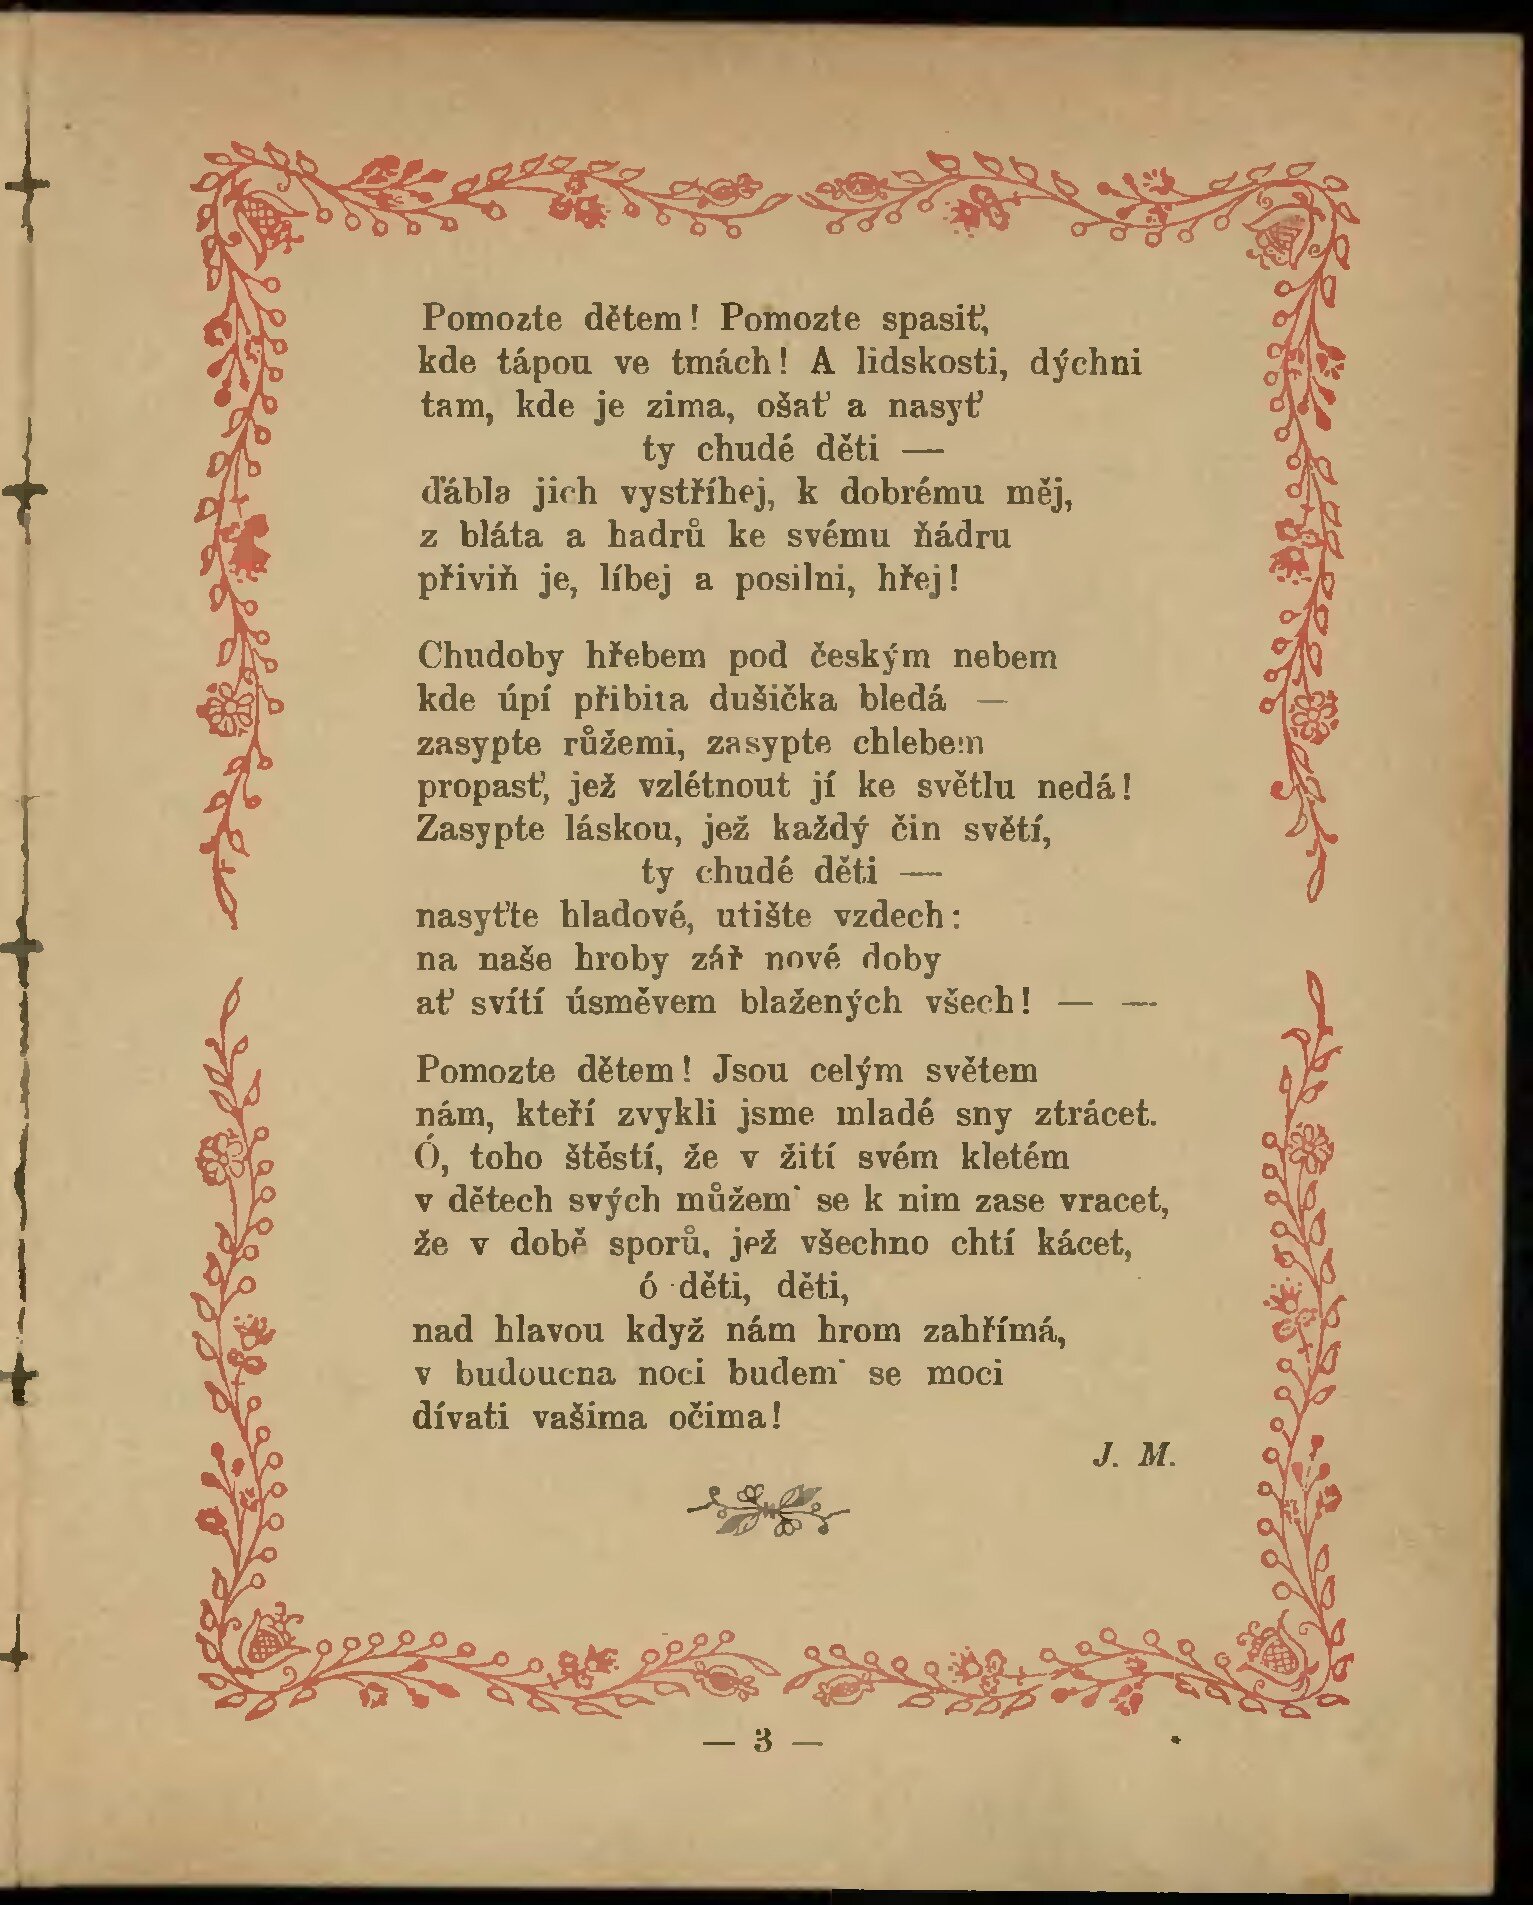 Pomozte dětem! Pomozte spasiť,
kde tápou ve tmách! A lidskosti, dýchni
tam, kde je zima, ošať a nasyť
ty chudé děti —
ďábla jich vystříhej, k dobrému měj,
z bláta a hadrů ke svému ňádru
přiviň je, líbej a posilni, hřej!
Chudoby hřebem pod českým nebem
kde úpí přibita dušička bledá —
zasypte růžemi, zasypte chlebem
propasť, jež vzlétnout jí ke světlu nedá!
Zasypte láskou, jež každý čin světí,
ty chudé děti —
nasyťte hladové, utište vzdech:
na naše hroby zář nové doby
ať svítí úsměvem blažených všech! — —
Pomozte dětem! Jsou celým světem
nám, kteří zvykli jsme mladé sny ztrácet.
Ó, toho štěstí, že v žití svém kletém
v dětech svých můžem' se k nim zase vracet,
že v době sporů, jež všechno chtí kácet,
ó děti, děti,
nad hlavou když nám hrom zahřímá,
v budoucna noci budem' se moci
dívati vašima očima!
J. M.
— 3 —